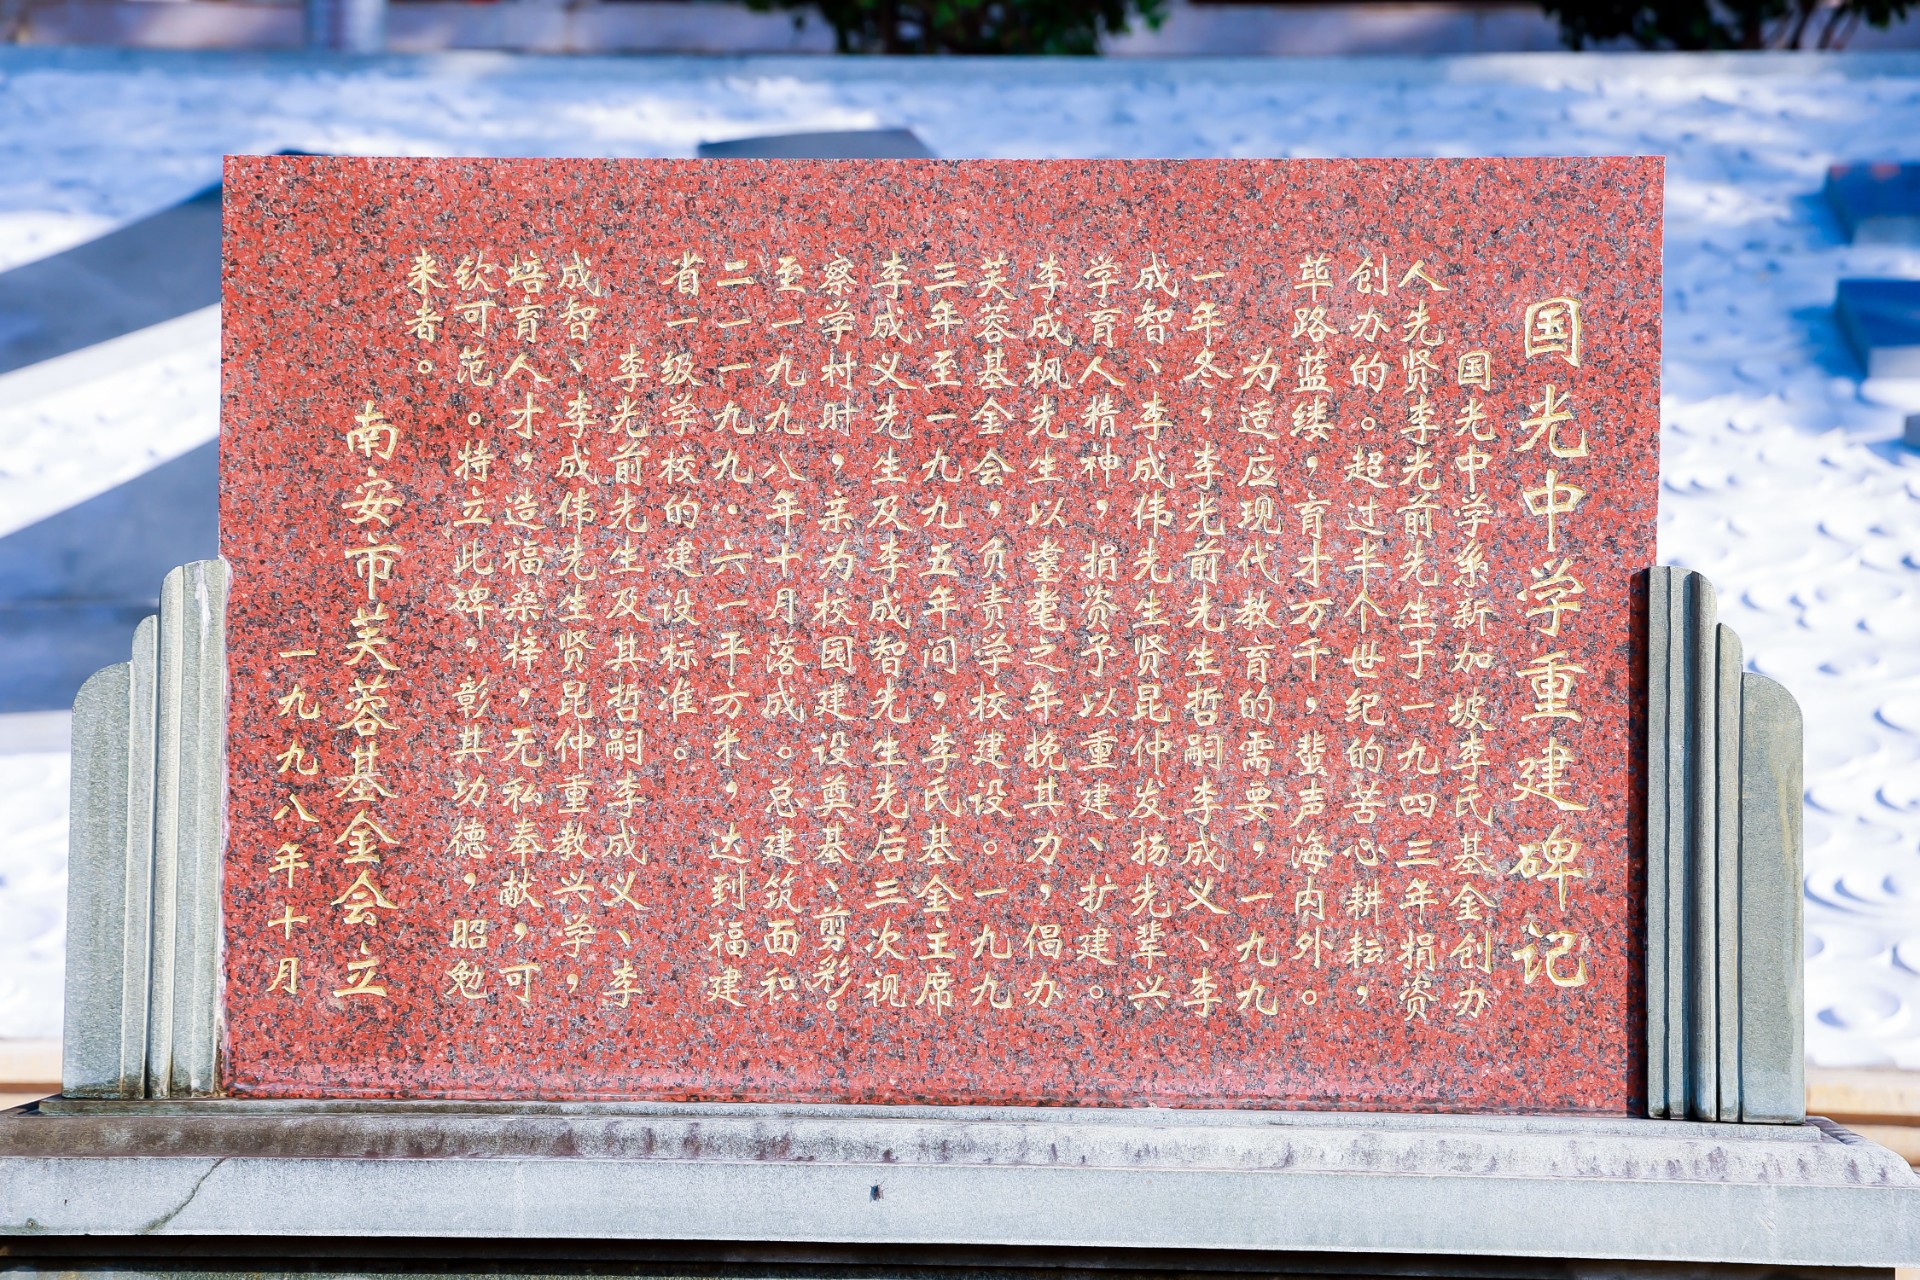 国光中学重建碑记
国光中学系新加坡李氏基金创办
人先贤李光前先生于一九四三年捐资
创办的。超过半个世纪的苦心耕耘，
荜路蓝缕，育才万千，蜚声海内外。
为适应现代教育的需要，一九九
一年冬，李光前先生哲嗣李成义、李
成智、李成伟先生贤昆仲发扬先辈兴
学育人精神，捐资予以重建、扩建。
李成枫先生以耄耋之年挽其力，倡办
芙蓉基金会，负责学校建设。一九九
三年至一九九五年间，李氏基金主席
李成义先生及李成智先生先后三次视
察学村时，亲为校园建设奠基、剪彩。
至一九九八年十月落成。总建筑面积
二一一九九·六一平方米，达到福建
省一级学校的建设标准。
李光前先生及其哲嗣李成义、李
成智、李成伟先生贤昆仲重教兴学，
培育人才，造福桑梓，无私奉献，可
钦可范。特立此碑，彰其功德，昭勉
来者。
南安市芙蓉基金会立
一九九八年十月